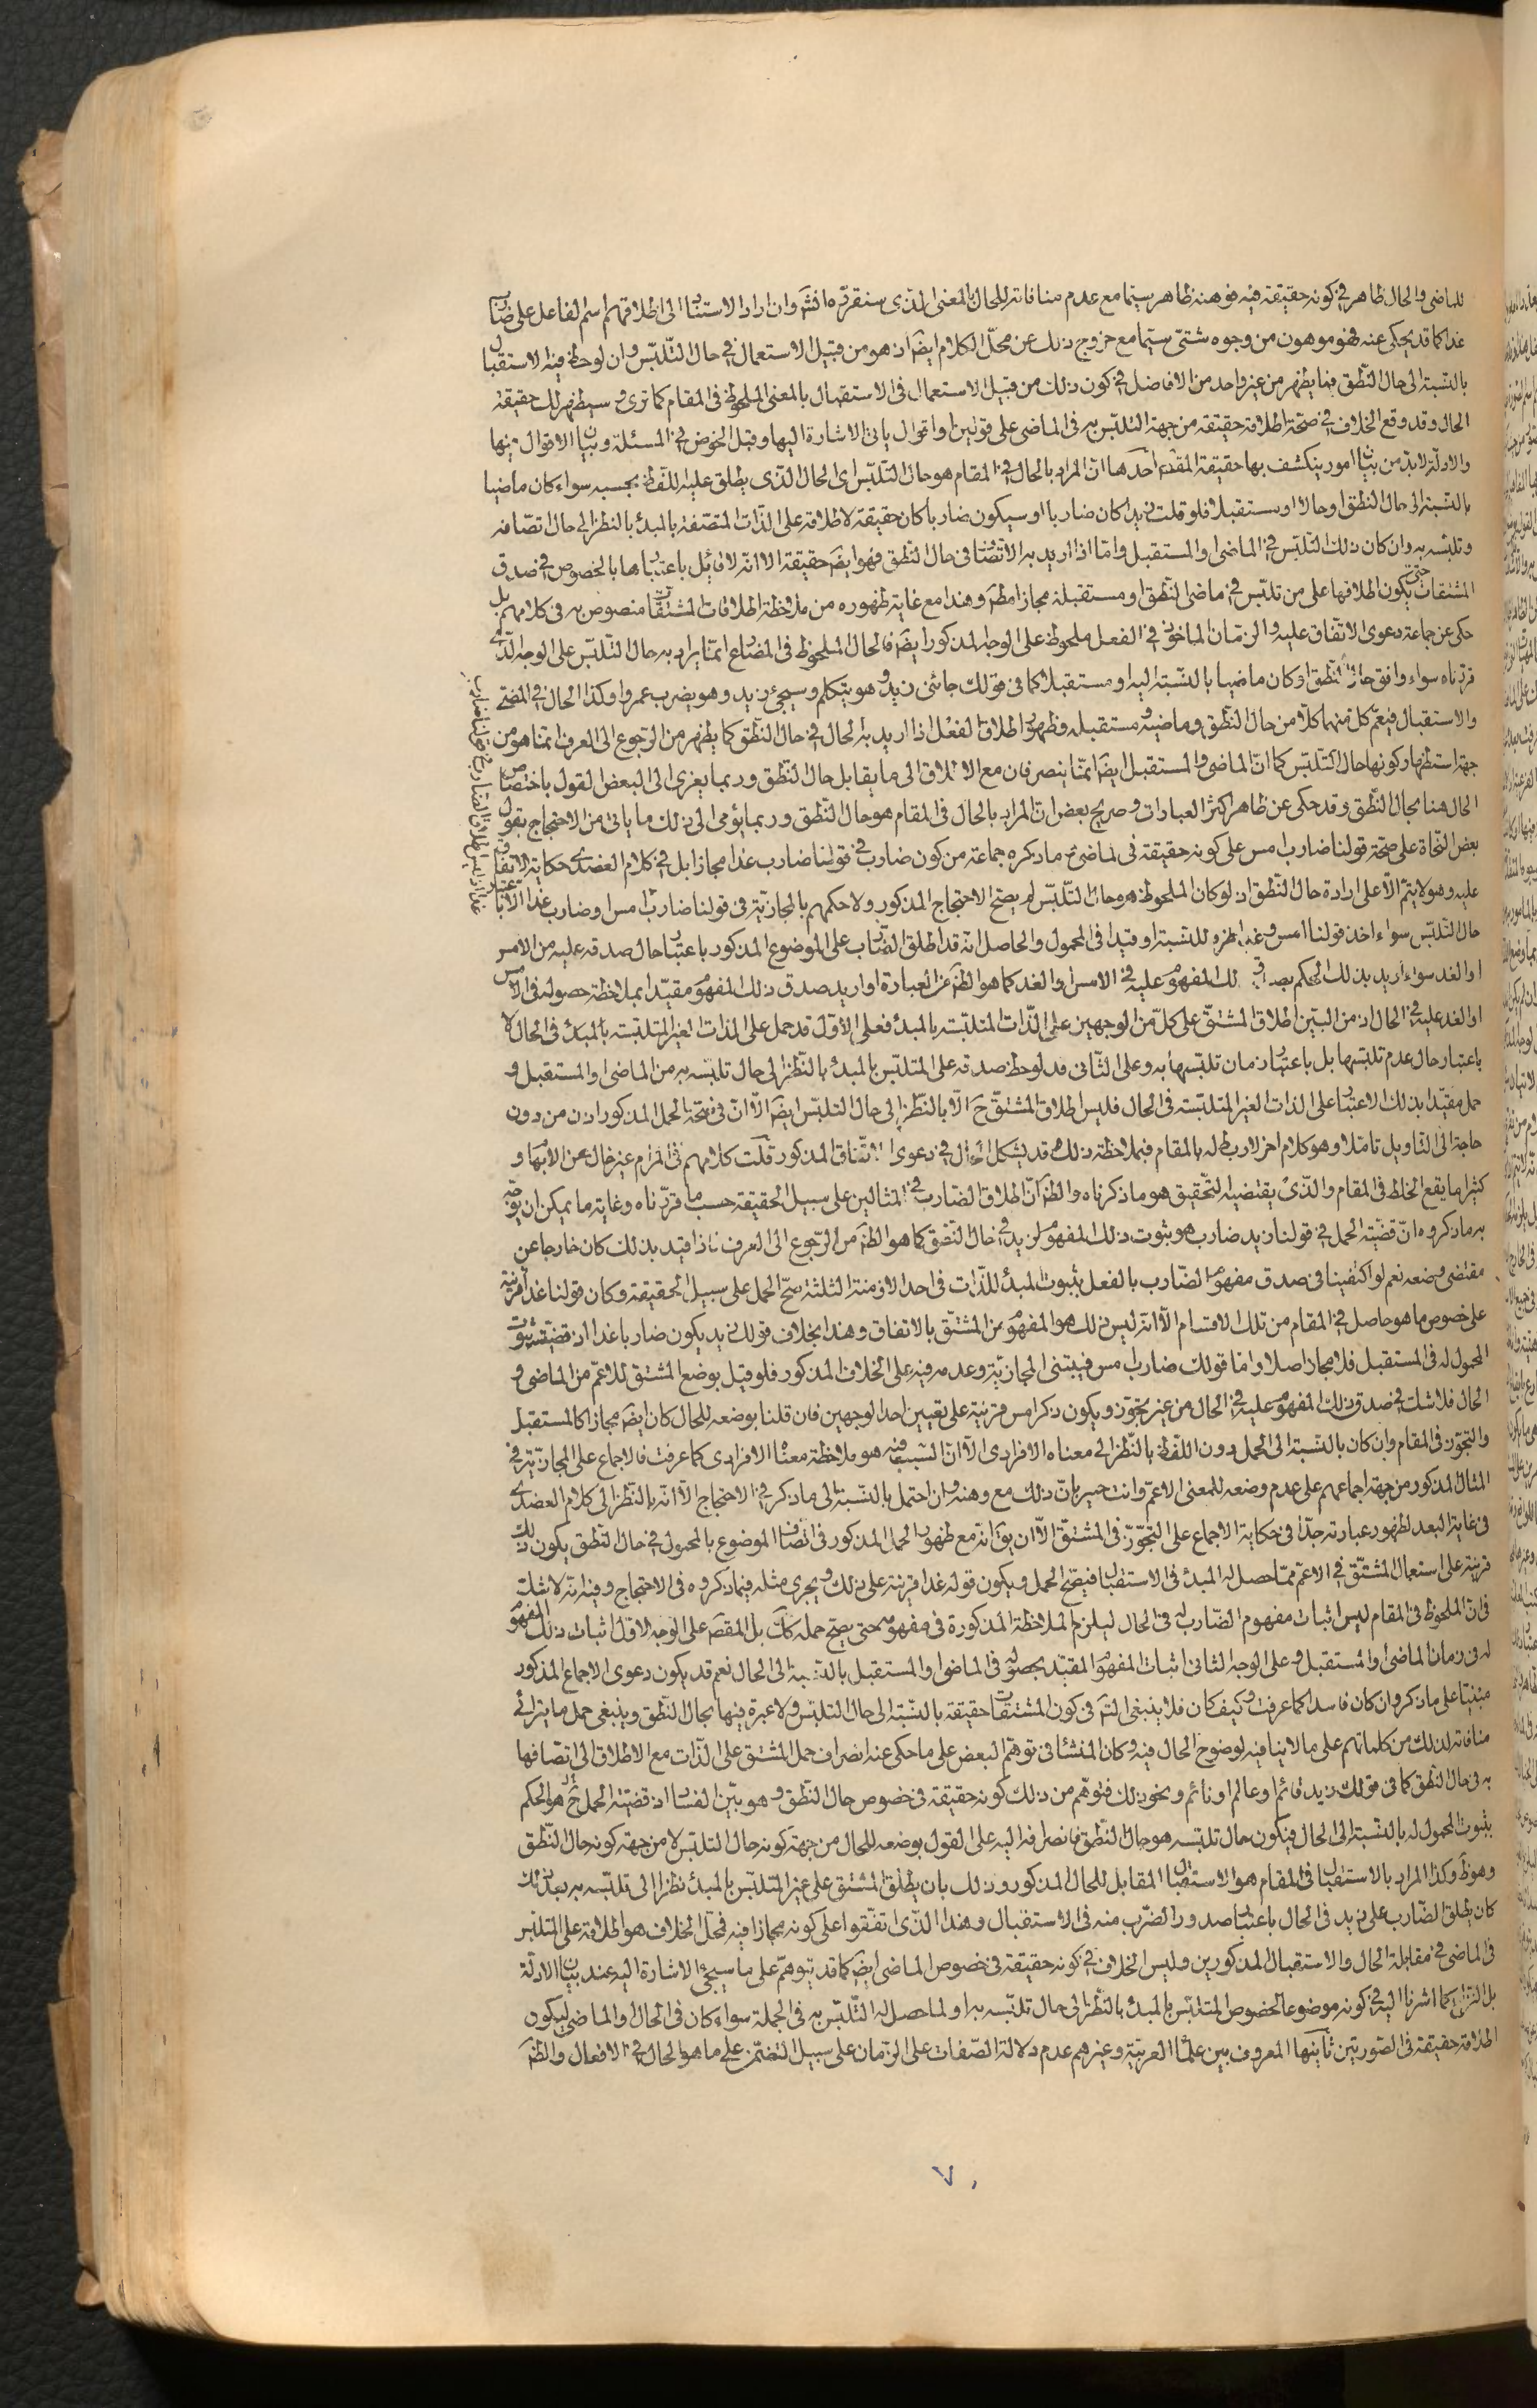 للماضي والحال ظاهر في كونه حقيقة فيه فوهنه ظاهر سيّما مع عدم منافاته للحال بالمعنى الّذي سنقرّره انشَ وان اراد الاستنادَ الى اطلاقهم اسم الفاعل على ضارب
غدا كما قد يحكى عنه فهو موهون من وجوه شتّى سيّما مع خروج ذلك عن محلّ الكلام ايضَ اذ هو من قبيل الاستعمال في حال التّلبّس وان لوحظ فيه الاستقبال
بالنّسبة الى حال النّطق فما يظهر من غير واحد من الافاضل في كون ذلك من قبيل الاستعمال في الاستقبال بالمعنى الملحوظ في المقام كما ترى وسيظهر لك حقيقة
الحال وقد وقع الخلاف في صحّة اطلاقه حقيقة من جهة التلبّس به في الماضي على قولين او اقوال ياتي الاشارة اليها وقبل الخوض في المسئلة وبيان الاقوال فيها
والادلّة لابدّ من بيان امور ينكشف بها حقيقة المقصَ احدها انّ المراد بالحال في المقام هو حال التّلبّس اى الحال الّذي يطلق عليه اللّفظ بحسبه سواء كان ماضيا
بالنّسبة الى حال النّطق او حالا او مستقبلا فلو قلت زيد كان ضاربا او سيكون ضاربا كان حقيقة لاطلاقه على الذّات المتّصفة بالمبدء بالنظر الى حال اتّصافه
وتلبّسه به وان كان ذلك التّلبّس في الماضي او المستقبل وامّا اذا اريد به الاتّصاف في حال النّطق فهو ايضَ حقيقة الا انّه لا قائل باعتبارها بالخصوص في صدق
المشتقات حتّى يكون اطلاقها على من تلبّس في ماضي النّطق او مستقبله مجازا مطَ وهذا مع غاية ظهوره من ملاحظة اطلاقات المشتقّات منصوص به في كلامهم بل
حكى عن جماعة دعوى الاتّفاق عليه والزّمان الماخوذ في الفعل ملحوظ على الوجه المذكور ايضَ فالحال الملحوظ في المضارع انّما يراد به حال التّلبّس على الوجه الّذي
قرّرناه سواء وافق حال النّطق او كان ماضيا بالنّسبة اليه او مستقبلا كما في قولك جائني زيد وهو يتكلم وسيجئ زيد وهو يضرب عمروا وكذا الحال في المضيّ
والاستقبال فيعمّ كلّ منهما كلّا من حال النّطق وماضيه ومستقبله وظهور اطلاق الفعل اذا اريد به الحال في حال النّطق كما يظهر من الرّجوع الى العرف انّما هو من
جهة استظهار كونها حال التّلبّس كما انّ الماضي والمستقبل ايضَ انّما ينصرفان مع الاطلاق الى ما يقابل حال النّطق وربما يعزى الى البعض القول باختصاص
الحال هنا بحال النّطق وقد حكى عن ظاهر اكثر العبارات وصريح بعض انّ المراد بالحال في المقام هو حال النّطق وربما يؤمى الى ذلك ما ياتي من الاحتجاج بقول
بعض النّحاة على صحّة قولنا ضارب امس على كونه حقيقة في الماضي ثم ما ذكره جماعة من كون ضارب في قولنا ضارب غدا مجازا بل في كلام العضدى حكاية الاتّفاق
عليه وهو لا يتمّ الّا على ارادة حال النّطق اذ لو كان الملحوظ هو حال التّلبّس لم يصحّ الاحتجاج المذكور ولا حكمهم بالمجازيّة في قولنا ضارب امس او ضارب غدا الّا باعتبار
حال التّلبّس سواء اخذ قولنا امس وغدا ظرفا للنّسبة او قيدا في المحمول والحاصل انّه قد اطلق الضّارب على الموضوع المذكور باعتبار حال صدقه عليه من الامس
او الغد سواء اريد بذلك الحكم بصدق ذلك المفهوم عليه في الامس او الغد كما هو الظَ من العبارة او اريد صدق ذلك المفهوم مقيّدا بملاحظة حصوله في الامس
او الغد عليه في الحال اذ من البيّن اطلاق المشتقّ على كلّ من الوجهين على الذّات المتلبّسة بالمبدء فعلى الاوّل قد حمل على الذات الغير المتلبّسة بالمبدء في الحال لا
باعتبار حال عدم تلبّسها بل باعتبار زمان تلبّسها به وعلى الثّاني قد لوحظ صدقه على المتلبّس بالمبدء بالنّظر الى حال تلبّسه به من الماضي او المستقبل و
حمل مقيّدا بذلك الاعتبار على الذات الغير المتلبّسة في الحال فليس اطلاق المشتقّ حَ الّا بالنّظر الى حال التلبّس ايضَ الّا انّ في صحّة الحمل المذكور اذن من دون
حاجة الى التّاويل تامّلا وهو كلام اخر لا ربط له بالمقام فبملاحظة ذلك قد يشكل الحال في دعوى الاتّفاق المذكور قلت كلامهم في المرام غير خال عن الابهام و
كثيرا ما يقع الخلط في المقام والّذي يقتضيه التّحقيق هو ما ذكرناه والظَ انّ اطلاق الضّارب في المثالين على سبيل الحقيقة حسب ما قرّرناه وغاية ما يمكن ان يوجّه
به ما ذكروه انّ قضيّة الحمل في قولنا زيد ضارب هو ثبوت ذلك المفهوم لزيد في حال النّطق كما هو الظَ من الرّجوع الى العرف فاذا قيد بذلك كان خارجا عن
مقتضى وضعه نعم لو اكتفينا في صدق مفهوم الضّارب بالفعل بثبوت المبدء للذّات في احد الازمنة الثلثة صحّ الحمل على سبيل الحقيقة وكان قولنا غدا قرينة
على خصوص ما هو حاصل في المقام من تلك الاقسام الّا انّه ليس ذلك هو المفهوم من المشتقّ بالاتفاق وهذا بخلاف قولك زيد يكون ضاربا غدا اذ قضيّته ثبوت
المحمول له في المستقبل فلا مجاز اصلا وامّا قولك ضارب امس فيبتنى المجازيّة وعدمه فيه على الخلاف المذكور فلو قيل بوضع المشتق للاعمّ من الماضي و
الحال فلا شك في صدق ذلك المفهوم عليه في الحال من غير تجوّز ويكون ذكر امس قرينة على تعيين احد الوجهين فان قلنا بوضعه للحال كان ايضَ مجازا كالمستقبل
والتجوّز في المقام وان كان بالنّسبة الى الحمل دون اللّفظ بالنّظر الى معناه الافرادى الّا انّ السّبب فيه هو ملاحظة معناه الافرادى كما عرفت فالاجماع على المجازيّة في
المثال المذكور من جهة اجماعهم على عدم وضعه للمعنى الاعمّ وانت خبير بانّ ذلك مع وهنه وان احتمل بالنّسبة الى ما ذكر في الاحتجاج الّا انّه بالنّظر الى كلام العضدى
في غاية البعد لظهور عبارته جدّا في حكاية الاجماع على التجوّز في المشتقّ الّا ان يقَ انّه مع ظهور الحمل المذكور في اتّصاف الموضوع بالمحمول في حال النّطق يكون ذلك
قرينة على استعمال المشتقّ في الاعمّ ممّا حصل له المبدء في الاستقبال فيصحّ الحمل ويكون قوله غدا قرينة على ذلك ويجرى مثله فيما ذكروه في الاحتجاج وفيه انّه لا شكّ
في انّ الملحوظ في المقام ليس اثبات مفهوم الضّارب له في الحال ليلزم الملاحظة المذكورة في مفهومه حتى يصحّ حمله كَ بل المقصَ على الوجه الاوّل اثبات ذلك المفهوم
له في زمان الماضي او المستقبل وعلى الوجه الثاني اثبات المفهوم المقيّد بحصوله في الماضي او المستقبل بالنّسبة الى الحال نعم قد يكون دعوى الاجماع المذكور
مبنيّا على ما ذكر وان كان فاسدا كما عرفت وكيف كان فلا ينبغى التَمَ في كون المشتقّات حقيقة بالنّسبة الى حال التلبّس ولا عبرة فيها بحال النّطق وينبغى حمل ما يترائى
منافاته لذلك من كلماتهم على ما لا ينافيه لوضوح الحال فيه وكان المنشا في توهّم البعض على ما حكى عنه انصراف حمل المشتق على الذّات مع الاطلاق الى اتّصافها
به في حال النّطق كما في قولك زيد قائم او عالم او نائم ونحو ذلك فتوهّم من ذلك كونه حقيقة في خصوص حال النّطق وهو بيّن الفساد اذ قضيّة الحمل حَ هو الحكم
بثبوت المحمول له بالنّسبة الى الحال فيكون حال تلبّسه هو حال النّطق فانصرافه اليه على القول بوضعه للحال من جهة كونه حال التلبّس لا من جهة كونه حال النّطق
وهو ظَ وكذا المراد بالاستقبال في المقام هو الاستقبال المقابل للحال المذكور وذلك بان يطلق المشتق على غير المتلبّس بالمبدء نظرا الى تلبّسه به بعد ذلك
كان يطلق الضّارب على زيد في الحال باعتبار صدور الضّرب منه في الاستقبال وهذا الّذي اتّفقوا على كونه مجازا فيه فمحلّ الخلاف هو اطلاقه على المتلبّس
في الماضي في مقابلة الحال والاستقبال المذكورين وليس الخلاف في كونه حقيقة في خصوص الماضي ايضَ كما قد يتوهّم على ما سيجئ الاشارة اليه عند بيان الادلّة
بل النّزاع كما اشرنا اليه في كونه موضوعا لخصوص المتلبّس بالمبدء بالنّظر الى حال تلبّسه به او لما حصل له التّلبّس به في الجملة سواء كان في الحال او الماضي ليكون
اطلاقه حقيقة في الصّورتين ثانيها المعروف بين علماء العربيّة وغيرهم عدم دلالة الصّفات على الزّمان على سبيل التضمّن على ما هو الحال في الافعال والظَ
٧٠